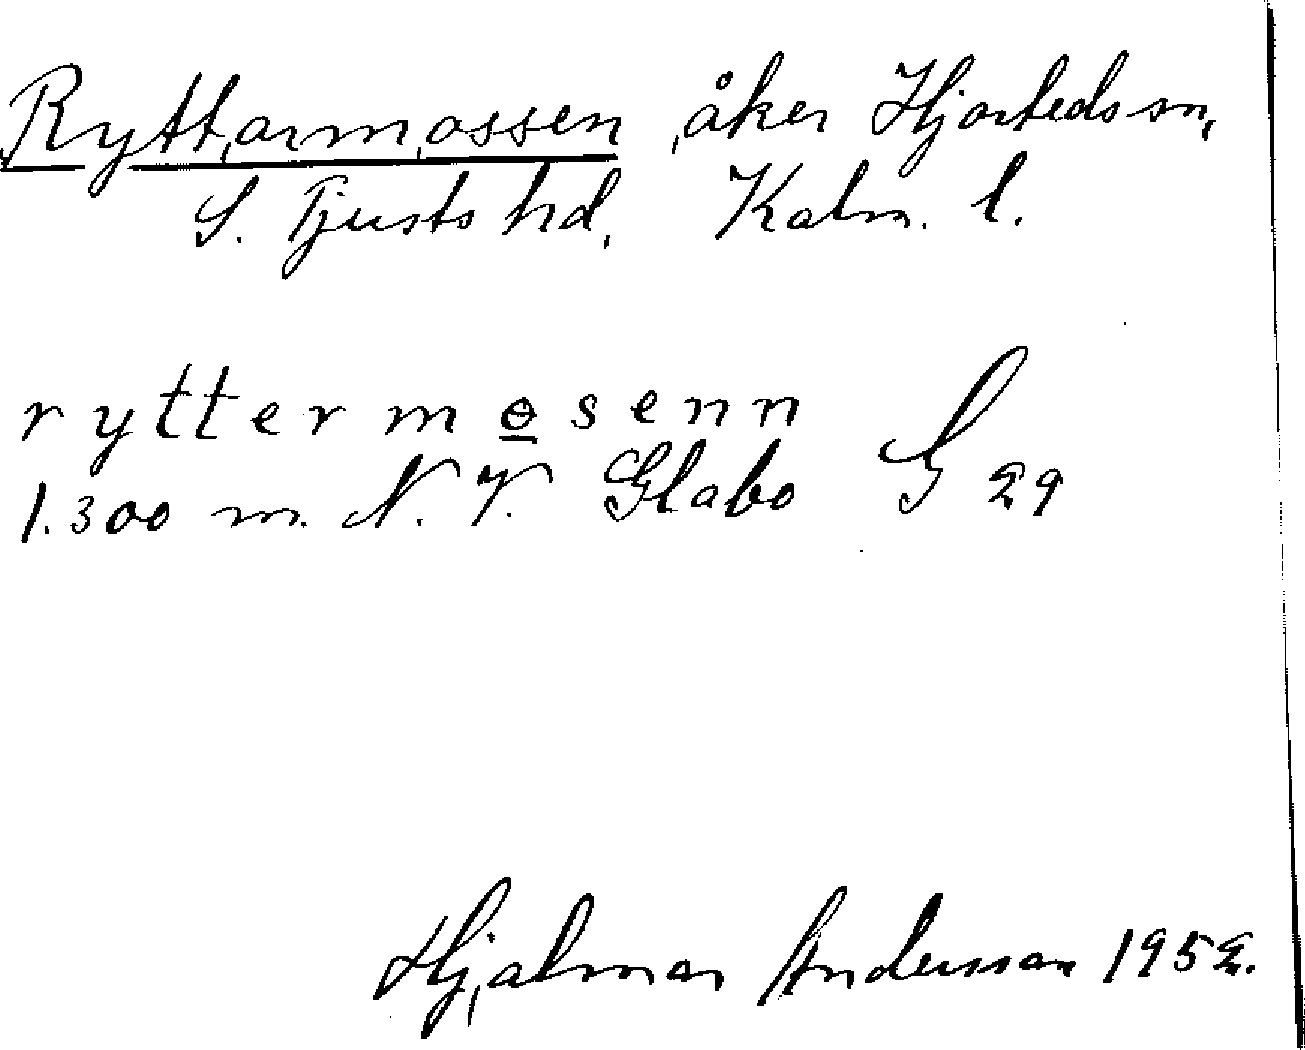 Ryttarmossen, åker Hjorteds sn,
S. Tjusts hd, Kalm. l.
ryttermɵsenn
1.300 m. N. V. Glabo G 29
Hjalmar Andersson 1952.